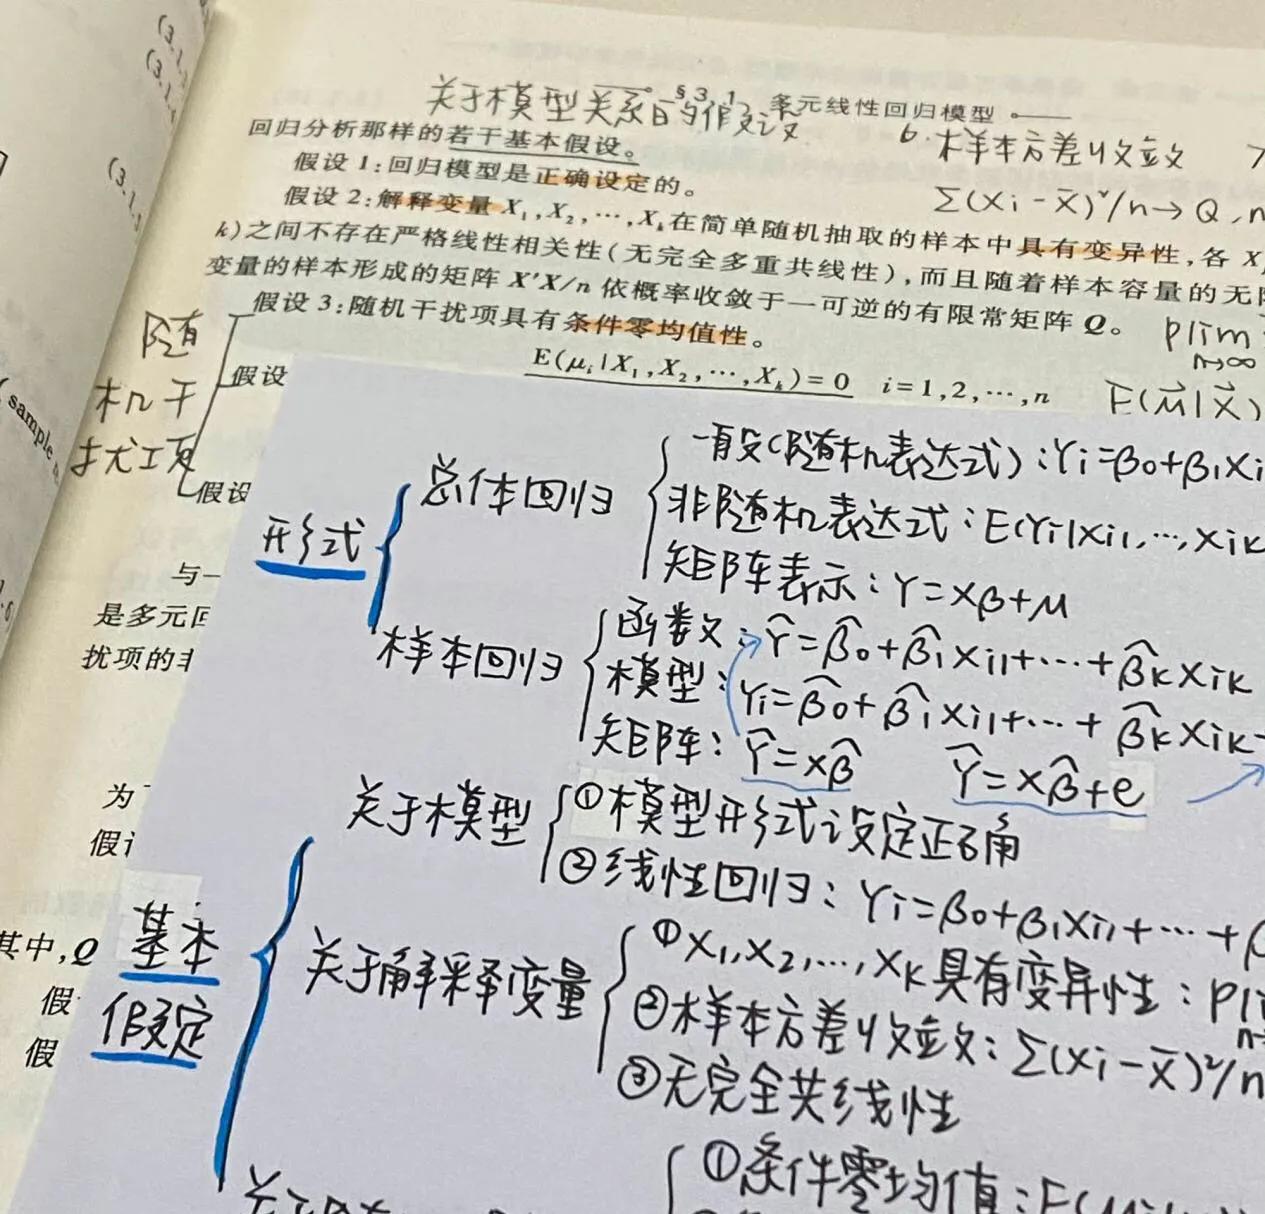 (3.1.
(3.1.
(3.1.
sample
§3.1 多元线性回归模型
关于模型关系的假设
6. 样本方差收敛
回归分析那样的若干基本假设。
∑(Xi-X̄)²/n→Q, n
假设 1:回归模型是正确设定的。
假设 2:解释变量 X₁,X₂,…,Xₖ在简单随机抽取的样本中具有变异性,各 X
k)之间不存在严格线性相关性(无完全多重共线性),而且随着样本容量的无
变量的样本形成的矩阵 X′X/n 依概率收敛于一可逆的有限常矩阵 Q。
plim
n→∞
假设 3:随机干扰项具有条件零均值性。
E(μᵢ|X₁,X₂,…,Xₖ)=0 i=1,2,…,n
E(μ⃗|X⃗)
随
机干
扰项
假设
假设
与一
是多元回
扰项的非
为
假
其中,Q
假
假
形式
总体回归
一般(随机表达式):Yi=β0+β1Xi
非随机表达式:E(Yi|Xi1,…,Xik
矩阵表示:Y=Xβ+μ
样本回归
函数:Ŷ=β̂0+β̂1Xi1+…+β̂kXik
模型:Yi=β̂0+β̂1Xi1+…+β̂kXik
矩阵:Ŷ=Xβ̂ Ŷ=Xβ̂+e
基本
假定
关于模型
①模型形式设定正确
②线性回归:Yi=β0+β1Xi1+…+β
关于解释变量
①X1,X2,…,Xk具有变异性:pli
n→
②样本方差收敛:∑(Xi-X̄)²/n
③无完全共线性
①条件零均值:E(μi